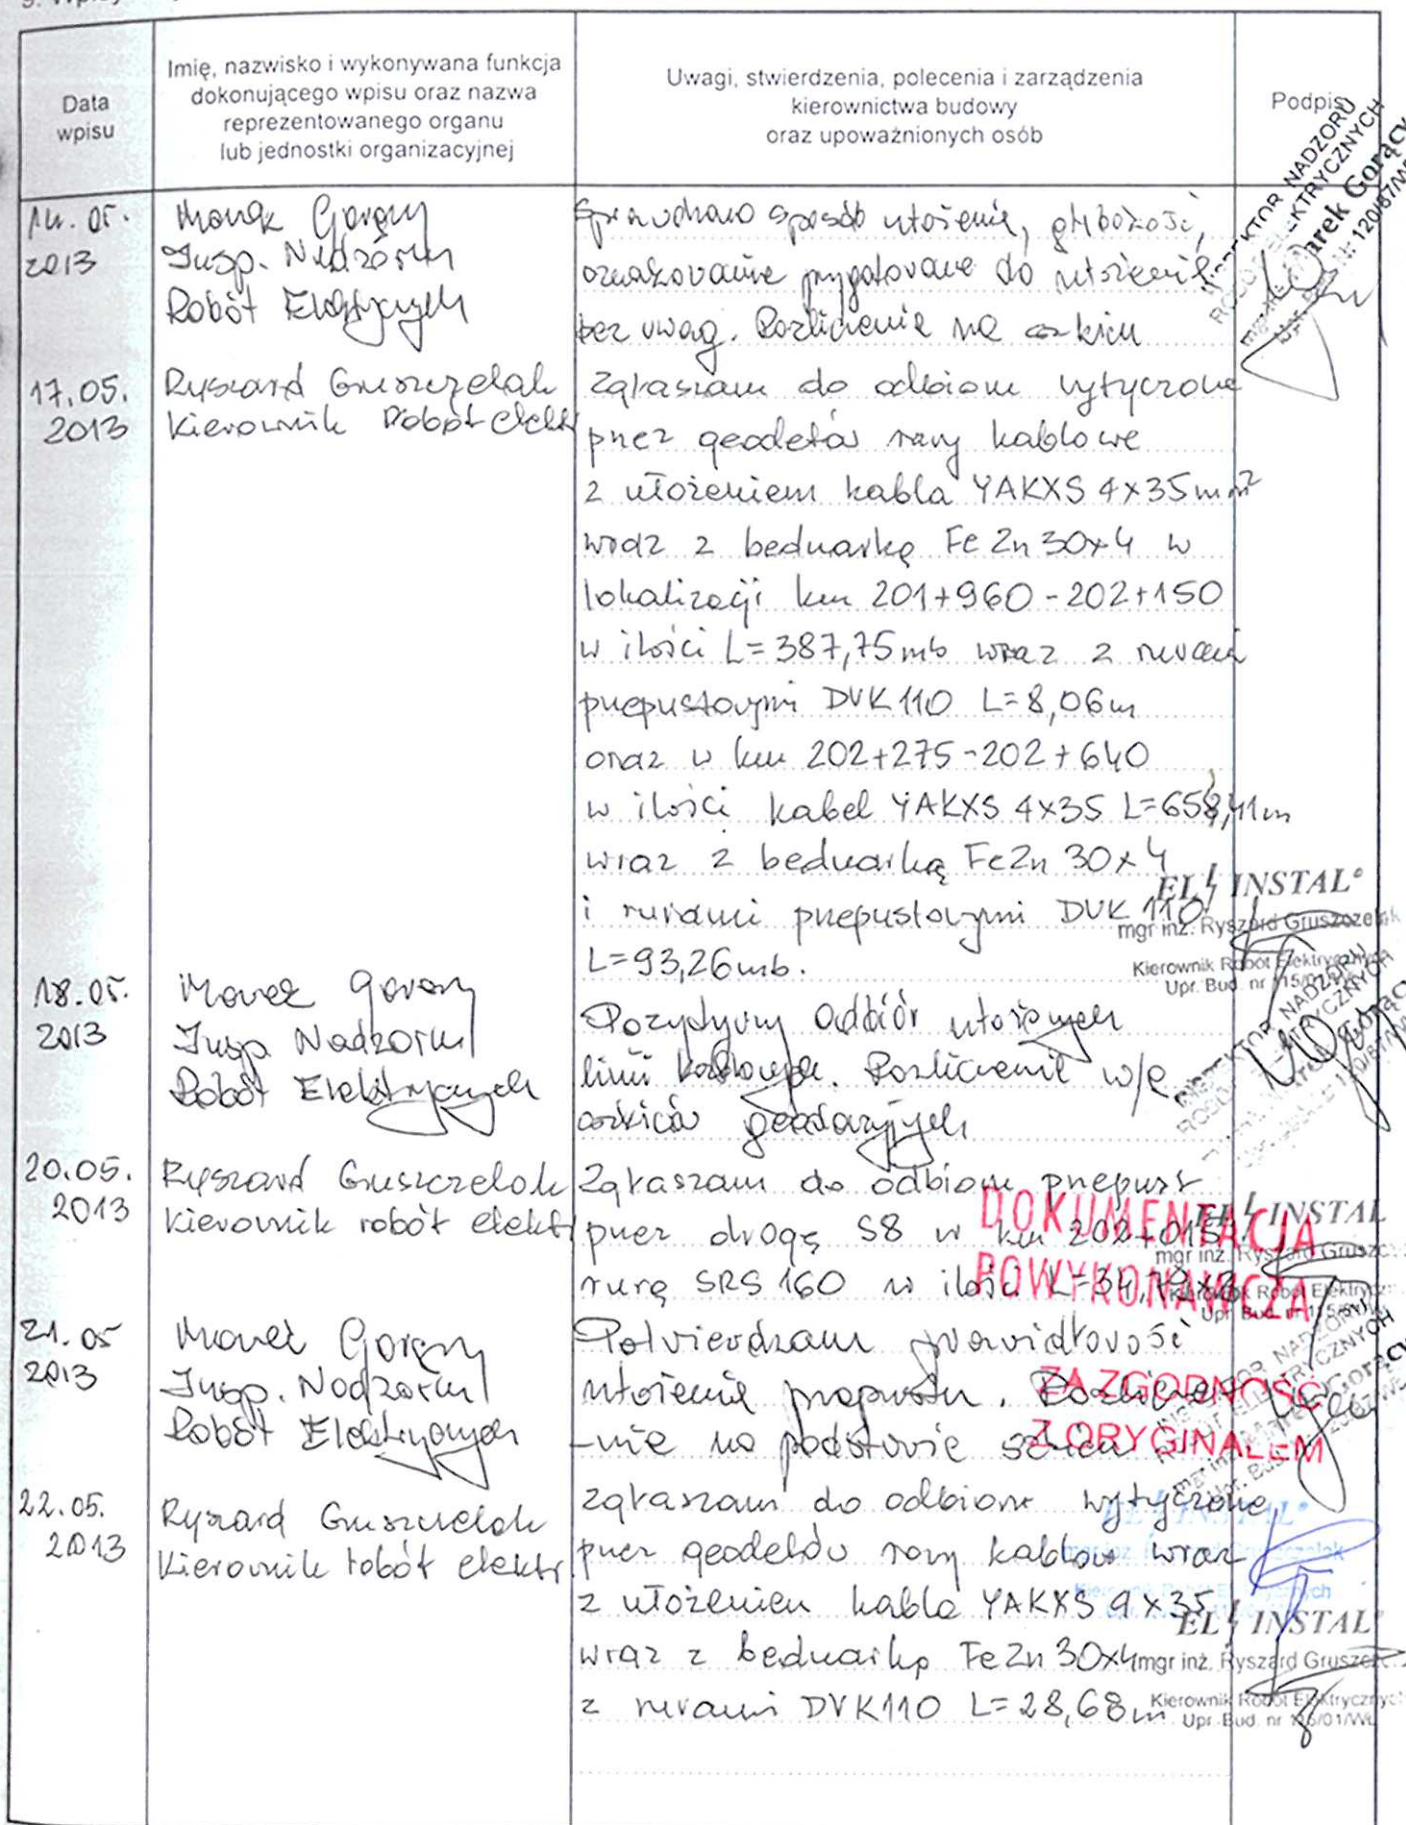 Data
wpisu
Imię, nazwisko i wykonywana funkcja
dokonującego wpisu oraz nazwa
reprezentowanego organu
lub jednostki organizacyjnej
Uwagi, stwierdzenia, polecenia i zarządzenia
kierownictwa budowy
oraz upoważnionych osób
Podpis
14. 05.
2013
Marek Gorący
Insp. Nadzoru
Robót Elektrycznych
Sprawdzono sposób ułożenia, głębokość,
oznakowanie przygotowane do ułożenia
bez uwag. Rozliczenie na szkicu
INSPEKTOR NADZORU
ROBÓT ELEKTRYCZNYCH
Marek Gorący
17.05.
2013
Ryszard Gruszczelak
Kierownik Robót elektr
Zgłaszam do odbioru wytyczone
przez geodetów rowy kablowe
z ułożeniem kabla YAKXS 4x35mm²
wraz z bednarką FeZn 30x4 w
lokalizacji km 201+960-202+150
w ilości L=387,75mb wraz z rurami
przepustowymi DVK 110 L=8,06m
oraz w km 202+275-202+640
w ilości kabel YAKXS 4x35 L=658,41m
wraz z bednarką FeZn 30x4
i rurami przepustowymi DVK 110
L=93,26mb.
EL INSTAL
mgr inż. Ryszard Gruszczelak
Kierownik Robót Elektrycznych
Upr. Bud. nr 115/01/WŁ
18.05.
2013
Marek Gorący
Insp. Nadzoru
Robót Elektrycznych
Pozytywny odbiór ułożonych
linii kablowych. Rozliczenie w/g
szkiców geodezyjnych
20.05.
2013
Ryszard Gruszczelak
Kierownik robót elektr
Zgłaszam do odbioru przepust
przez drogę S8 w km 202+015
rurą SRS 160 w ilości
DOKUMENTACJA
POWYKONAWCZA
EL INSTAL
mgr inż. Ryszard Gruszcz
Kierownik Robót Elektrycz
Upr. Bud. nr 115/01/WŁ
21.05
2013
Marek Gorący
Insp. Nadzoru
Robót Elektrycznych
Potwierdzam prawidłowość
ułożenia przepustu. Rozlicze
-nie na podstawie szkicu
ZA ZGODNOŚĆ
Z ORYGINAŁEM
22.05.
2013
Ryszard Gruszczelak
Kierownik robót elektr
zgłaszam do odbioru wytyczone
przez geodetów rowy kablow wraz
z ułożeniem kabla YAKXS 4x35
wraz z bednarką FeZn 30x4
z rurami DVK110 L=28,68m
EL INSTAL
mgr inż. Ryszard Gruszcz
Kierownik Robót Elektrycznych
Upr. Bud. nr 115/01/WŁ